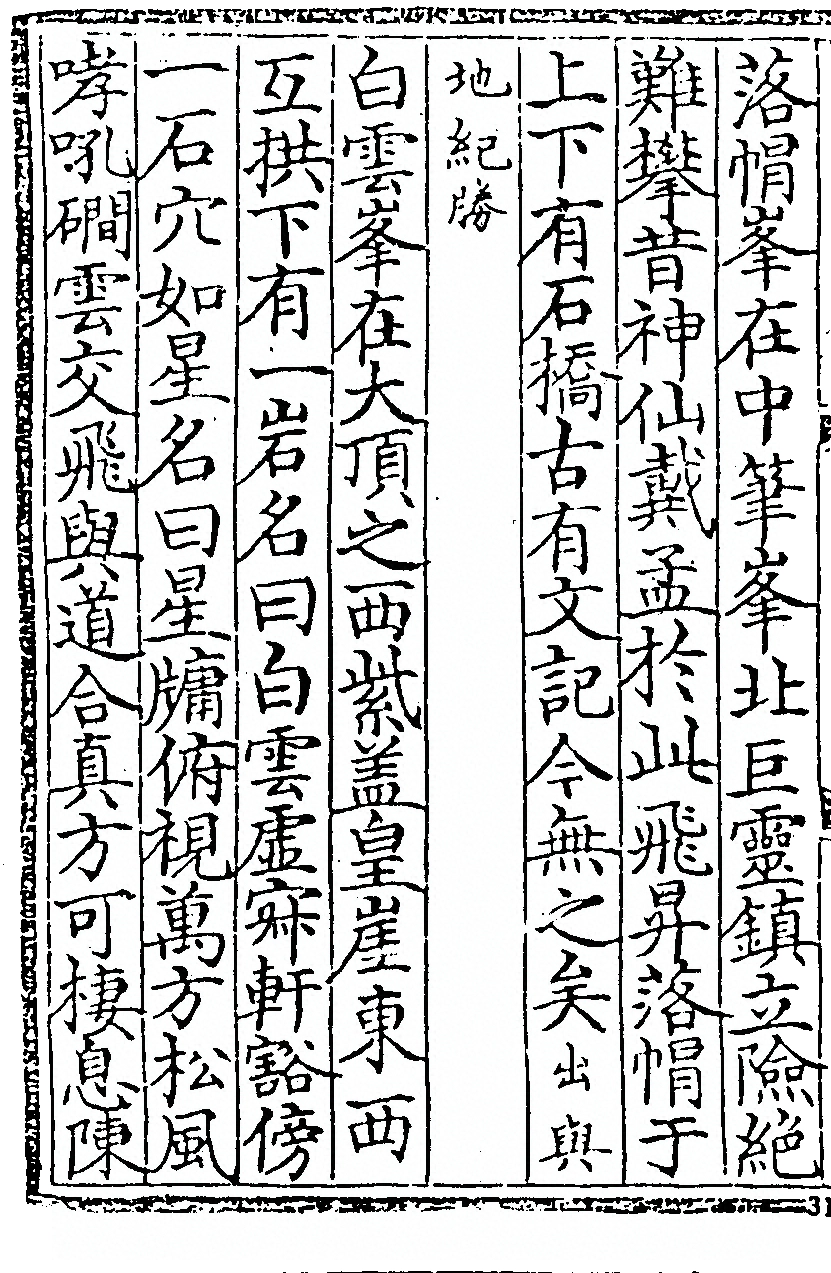 落帽峯在中筆峯北巨靈鎮立險絕
難攀昔神仙戴孟於此飛昇落帽于
上下有石橋古有文記今無之矣出輿
地紀勝
白雲峯在大頂之西紫盖皇崖東西
互拱下有一岩名曰白雲虛寂軒豁傍
一石穴如星名曰星牖俯視萬方松風
哮吼磵雲交飛與道合真方可棲息陳
31